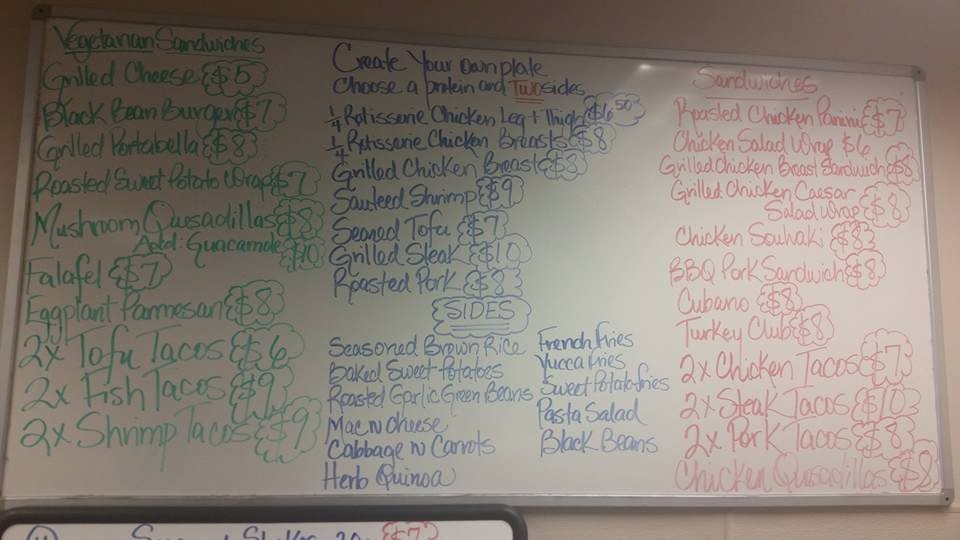 Vegetarian Sandwiches
Grilled Cheese $5
Black Bean Burger $7
Grilled Portabella $8
Roasted Sweet Potato Wrap $7
Mushroom Quesadillas $8
Add: Guacamole $10
Falafel $7
Eggplant Parmesan $8
2x Tofu Tacos $6
2x Fish Tacos $9
2x Shrimp Tacos $9
Create Your own plate
Choose a protein and TWO sides
1/4 Rotisserie Chicken Leg + Thigh $6.50
1/4 Rotisserie Chicken Breasts $8
Grilled Chicken Breast $8
Sauteed Shrimp $9
Seared Tofu $7
Grilled Steak $10
Roasted Pork $8
SIDES
Seasoned Brown Rice
Baked Sweet Potatoes
Roasted Garlic Green Beans
Mac n Cheese
Cabbage n Carrots
Herb Quinoa
French fries
Yucca fries
Sweet Potato fries
Pasta Salad
Black Beans
Sandwiches
Roasted Chicken Panini $7
Chicken Salad Wrap $6
Grilled Chicken Breast Sandwich $8
Grilled Chicken Caesar
Salad Wrap $8
Chicken Souvlaki $8
BBQ Pork Sandwich $8
Cubano $8
Turkey Club $8
2x Chicken Tacos $7
2x Steak Tacos $10
2x Pork Tacos $8
Chicken Qusadillas $8
$7